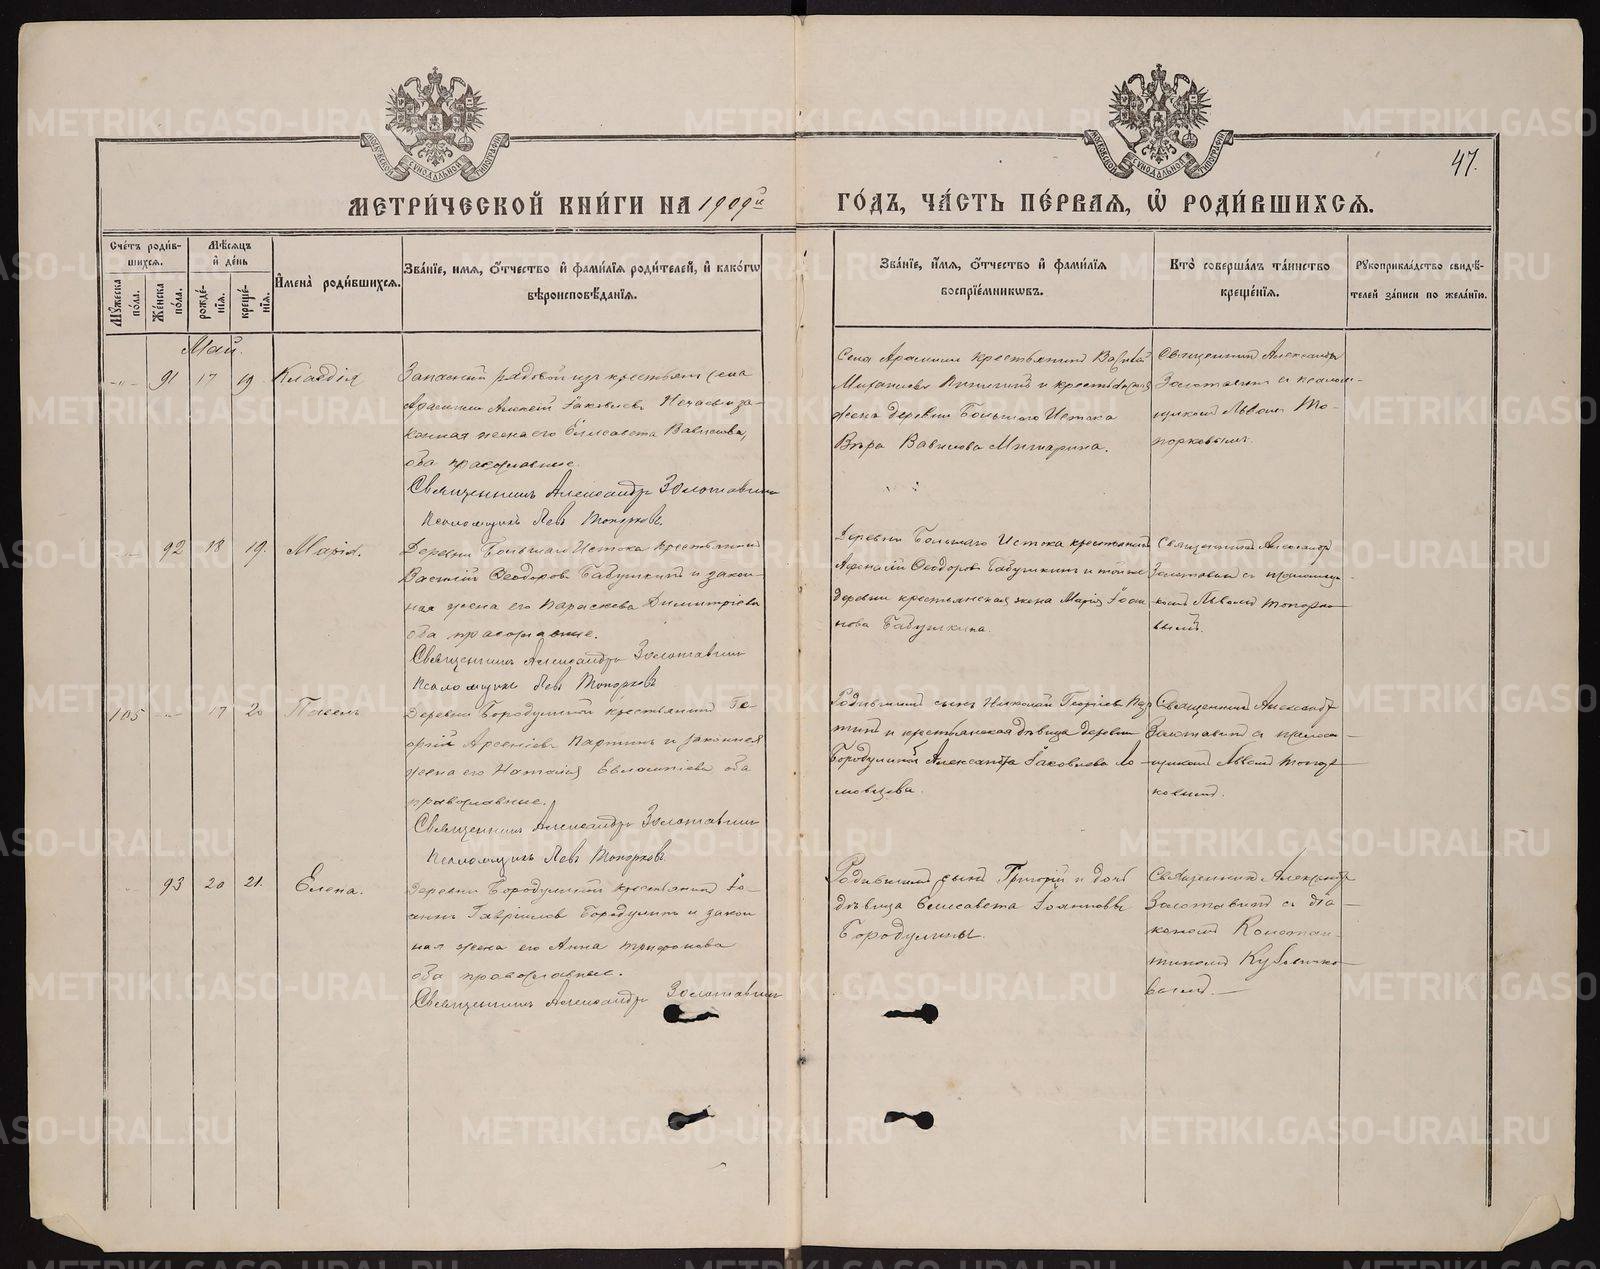 47.
МЕТРИ́ЧЕСКОЙ КНИ́ГИ НА 1909й ГО́ДЪ, ЧА́СТЬ ПЕ́РВАЯ, Ѡ҆ РОДИ́ВШИХСЯ.
Сче́тъ роди́вшихся.
Мꙋ́жеска по́ла.
Же́нска по́ла.
Мѣ́сяцъ и҆ де́нь
рожде́нїя.
креще́нїя.
И҆мена̀ роди́вшихся.
Зва́нїе, и́мя, ѻ҆́тчество и҆ фами́лїя роди́телей, и҆ како́гѡ
вѣроисповѣ́данїя.
Зва́нїе, и҆́мя, ѻ҆́тчество и҆ фами́лїя
воспрїе́мникѡвъ.
Кто̀ соверша́лъ та́инство
креще́нїя.
Рꙋкоприкла́дство свидѣ́-
телей за́писи по жела́нїю.
Май.
91 17 19. Клавдія
Запасный рядовой изъ крестьянъ села
Арамили Алексѣй Іаковлевъ и за-
конная жена его Елисавета Вавилова,
оба православные.
Священникъ Александръ Золотавинъ
Псаломщикъ Левъ Топорковъ.
Села Арамили крестьянинъ
Михаиловъ и крестьянская
жена деревни Большого Истока
Вѣра Вавилова
Священникъ Александръ
Золотавинъ съ псалом-
щикомъ Львомъ То-
порковымъ.
92 18 19. Марія.
Деревни Большаго Истока крестьянинъ
Василій Ѳеодоровъ Бабушкинъ и закон-
ная жена его Параскева Димитріева
оба православные.
Священникъ Александръ Золотавинъ
Псаломщикъ Левъ Топорковъ
Деревни Большаго Истока крестьянинъ
Аѳанасій Ѳеодоровъ Бабушкинъ и той же
деревни крестьянская жена Марія Іоан-
нова Бабушкина.
Священникъ Александръ
Золотавинъ съ псаломщи-
комъ Львомъ Топорко-
вымъ.
105 17 20 Павелъ
Деревни Бородулиной крестьянинъ Ге-
оргій Арсеніевъ и законная
жена его Наталія Евлампіева оба
православные.
Священникъ Александръ Золотавинъ
Псаломщикъ Левъ Топорковъ
Родившаго сынъ Николай Георгіевъ
и крестьянская дѣвица деревни
Бородулиной Александра Іаковлева Ло-
мовцева.
Священникъ Александръ
Золотавинъ съ псалом-
щикомъ Львомъ Топор-
ковымъ.
93 20 21. Елена.
Деревни Бородулиной крестьянинъ Іо-
аннъ Гавріиловъ Бородулинъ и закон-
ная жена его Анна Трифонова
оба православные.
Священникъ Александръ Золотавинъ
Родившаго сынъ Григорій и дочь
дѣвица Елисавета Іоанновы
Бородулины.
Священникъ Александръ
Золотавинъ съ діа-
кономъ Констан-
тиномъ
вымъ.
METRIKI.GASO-URAL.RU